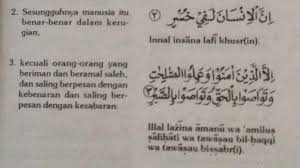 2. Sesungguhnya manusia itu
benar-benar dalam keru-
gian,
اِنَّ الْاِنْسَانَ لَفِيْ خُسْرٍ ﴿٢﴾
Innal insāna lafī khusr(in).
3. kecuali orang-orang yang
beriman dan beramal saleh,
dan saling berpesan dengan
kebenaran dan saling ber-
pesan dengan kesabaran.
اِلَّا الَّذِيْنَ اٰمَنُوْا وَعَمِلُوا الصّٰلِحٰتِ
وَتَوَاصَوْا بِالْحَقِّ وَتَوَاصَوْا بِالصَّبْرِ ﴿٣﴾
Illal lażīna āmanū wa 'amiluṣ
ṣāliḥāti wa tawāṣau bil-ḥaqqi
wa tawāṣau biṣṣabr(i)